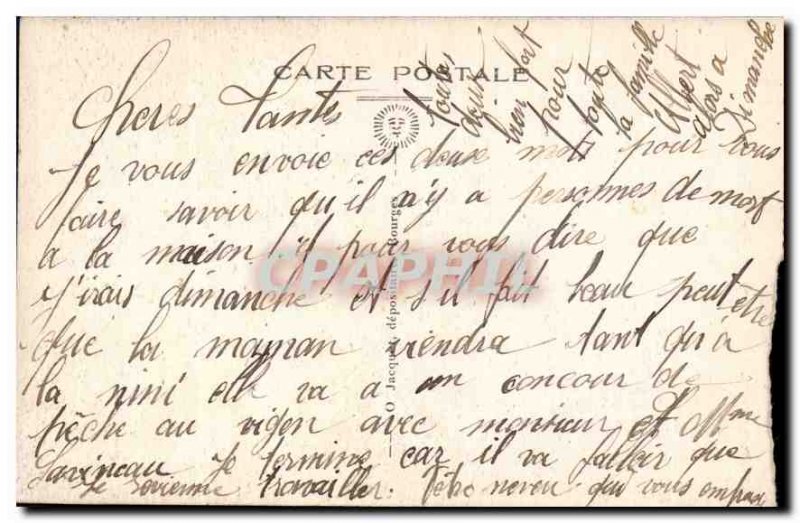 CARTE POSTALE
Cheres Tantes
Je vous envoie ces deuse mots pour vous
faire savoir qu'il n'y a personnes de mort
a la maison il pour vous dire que
j'irais dimanche et s'il fait beau peut être
que la maman viendra tant qu'à
la nini elle va a un concour de
pêche au vigen avec monsieur et Mme
Savineau je termine car il va falloir que
je revienne travailler. Votre neveu qui vous embrasse
toutes
bien fort
pour
toute
la famille
Albert
alors a
Dimanche
O Jacquet dépositaire Bourges
CPAPHIL